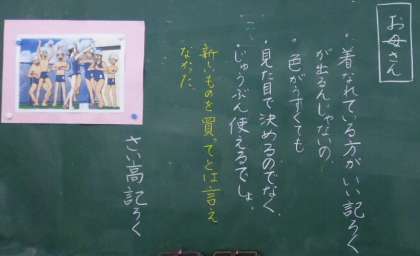 お母さん
・着なれている方がいい記ろく
が出るんじゃないの。
色がうすくても
・見た目で決めるのでなく、
・じゅうぶん使えるでしょ。
新しいものを買ってとは言え
なかった。
さい高記ろく